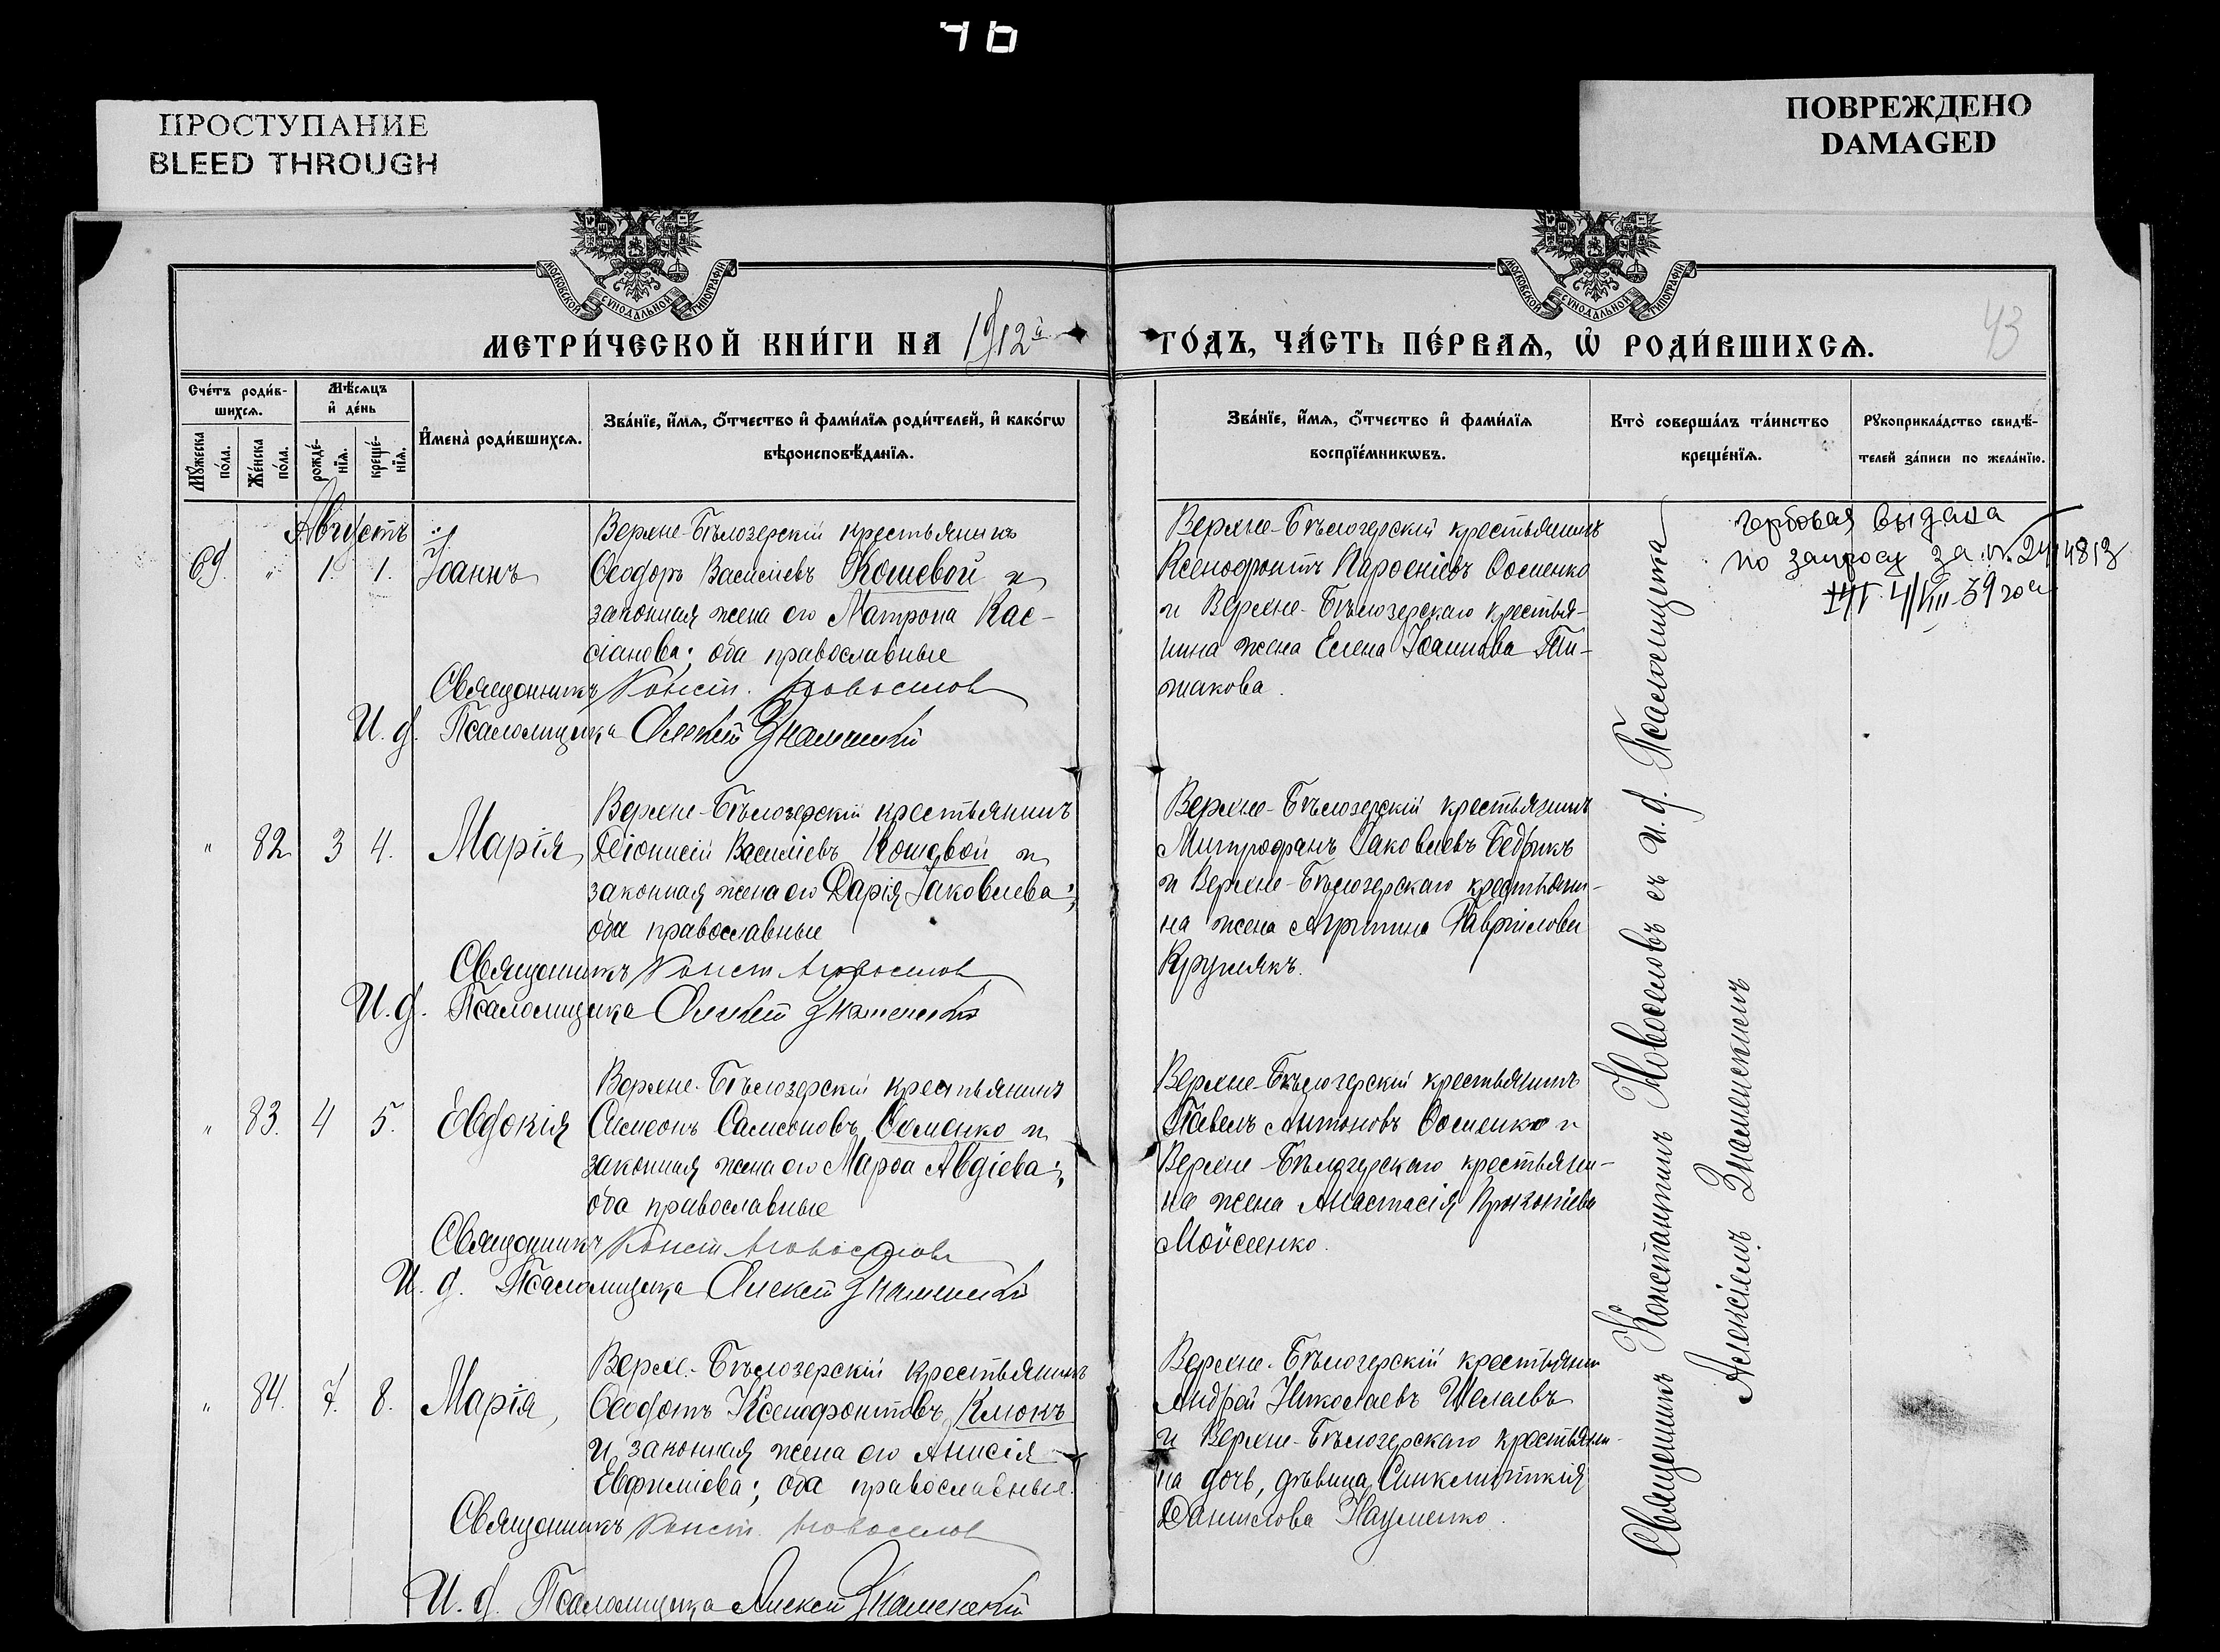 46
ПРОСТУПАНИЕ
BLEED THROUGH
ПОВРЕЖДЕНО
DAMAGED
МОСКОВСКОЙ СѴНОДАЛЬНОЙ ТИПОГРАФІИ
МОСКОВСКОЙ СѴНОДАЛЬНОЙ ТИПОГРАФІИ
МЕТРИ́ЧЕСКОЙ КНИ́ГИ НА 1912й
ГО́ДЪ, ЧА́СТЬ ПЕ́РВАѦ, Ѡ҆ РОДИ́ВШИХСѦ.
43
Сче́тъ роди́вшихсѧ.
Мꙋ́жеска по́ла.
Же́нска по́ла.
Мѣ́сѧцъ и҆ де́нь
рожде́нїѧ.
креще́нїѧ.
И҆мена̀ роди́вшихсѧ.
Зва́нїе, и҆́мѧ, ѻ҆́тчество и҆ фами́лїѧ роди́телей, и҆ како́гѡ
вѣроисповѣ́данїѧ.
Зва́нїе, и҆́мѧ, ѻ҆́тчество и҆ фами́лїѧ
воспрїе́мникѡвъ.
Кто̀ соверша́лъ та́инство
креще́нїѧ.
Рꙋкоприкла́дство свидѣ́-
телей за́писи по жела́нїю.
Августъ
69. " 1. 1. Іоаннъ
Верхне-Бѣлозерскій крестьянинъ
Ѳеодоръ Василіевъ Кошевой и
законная жена его Матрона Кас-
сіанова; оба православные
Священникъ Конст. Новоселов
И. д. Псаломщика Алексій Знаменскій
Верхне-Бѣлозерскій крестьянинъ
Ксенофонтъ Парѳеніевъ Ѳоменко
и Верхне-Бѣлозерскаго крестья-
нина жена Елена Іоаннова
жакова.
выдана
по запросу за №
" 82 3 4. Марія
Верхне-Бѣлозерскій крестьянинъ
Діонисій Василіевъ Кошевой и
законная жена его Дарія Іаковлева;
оба православные
Священникъ Конст Новоселов
И. д. Псаломщика Алексій Знаменскій
Верхне-Бѣлозерскій крестьянинъ
Митрофанъ Іаковлевъ Бедрикъ
и Верхне-Бѣлозерскаго крестьяни-
на жена Агрипина Гаврилова
Кружлякъ.
" 83. 4 5. Евдокія
Верхне-Бѣлозерскій крестьянинъ
Симеонъ Самсоновъ Ѳоменко и
законная жена его Марѳа Авдіева;
оба православные
Священникъ Конст Новоселов
И. д. Псаломщика Алексій Знаменскій
Верхне-Бѣлозерскій крестьянинъ
Павелъ Антоновъ Ѳоменко и
Верхне-Бѣлозерскаго крестьяни-
на жена Анастасія Прокопіева
Мойсеенко.
" 84. 7. 8. Марія
Верхне-Бѣлозерскій крестьянинъ
Ѳеодотъ Ксенофонтовъ Клюкъ
и законная жена его Анисія
Евфиміева; оба православные.
Священникъ Конст. Новоселов
И. д. Псаломщика Алексій Знаменскій
Верхне-Бѣлозерскій крестьянин
Андрей Николаевъ Шелаевъ
и Верхне-Бѣлозерскаго крестьяни-
на дочь, дѣвица Синклитикія
Данилова Науменко.
Священникъ Константинъ Новоселовъ съ и. д. Псаломщика
Алексіемъ Знаменскимъ